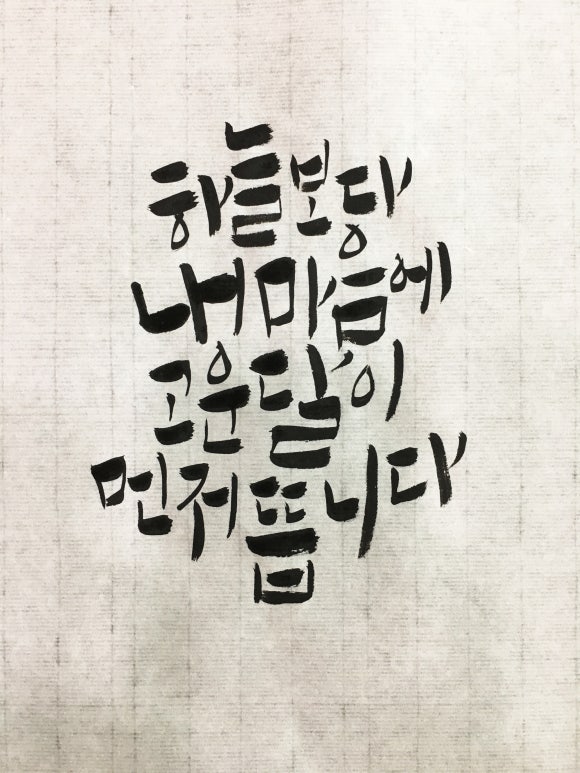 하늘보당
내 마음에
고운 달이
먼저 뜹니다